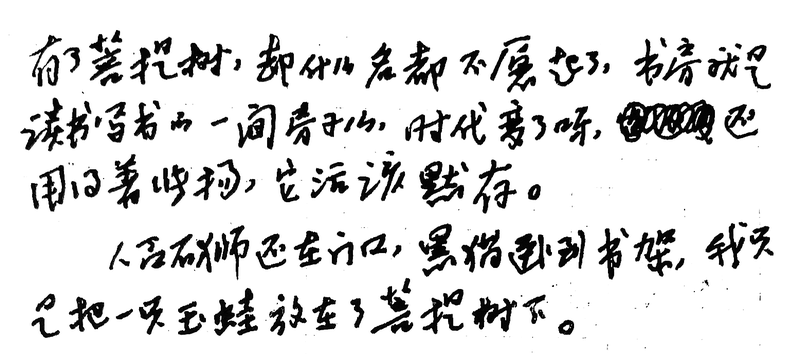 有了菩提树，却什么名都不愿起了，书房就是
读书写书的一间房子么，时代变了嘛，还
用得着张扬，它活该默存。
石狮还在门口，黑猫卧到书架，我只
是把一只玉蛙放在了菩提树下。